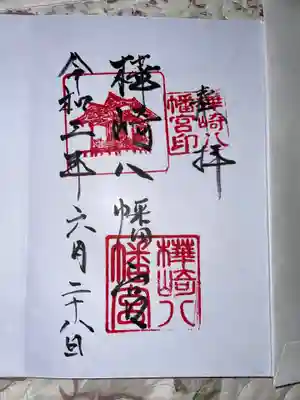 奉拝
樺崎八幡宮印
樺崎八幡宮
樺崎八幡宮
令和二年六月二十八日